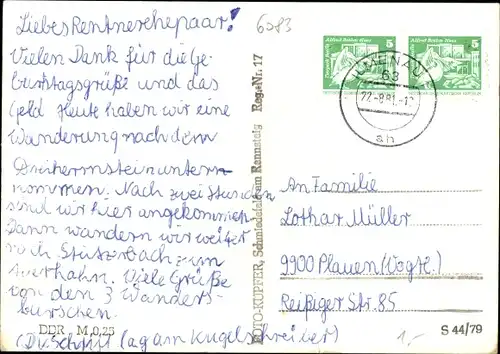 Liebes Rentnerehepaar!
6083
Vielen Dank für die Ge-
burtstagsgrüße und das
Geld. Heute haben wir eine
Wanderung nach dem
Dreiherrnstein untern-
nommen. Nach zwei Stunden
sind wir hier angekommen.
Dann wandern wir weiter
nach Stützerbach zum
Auerhahn. Viele Grüße
von den 3 Wanders-
burschen.
DDR M 0,25
(D. Schrift lag am Kugelschreiber)
FOTO-KUPFER, Schmiedefeld am Rennsteig Reg.-Nr. 17
Alfred Brehm Haus
5
Alfred Brehm Haus
5
ILMENAU
63
22.-8.81.-1
ah
An Familie
Lothar Müller
9900 Plauen (Vogtl.)
Reißiger Str. 85
1,-
S 44/79